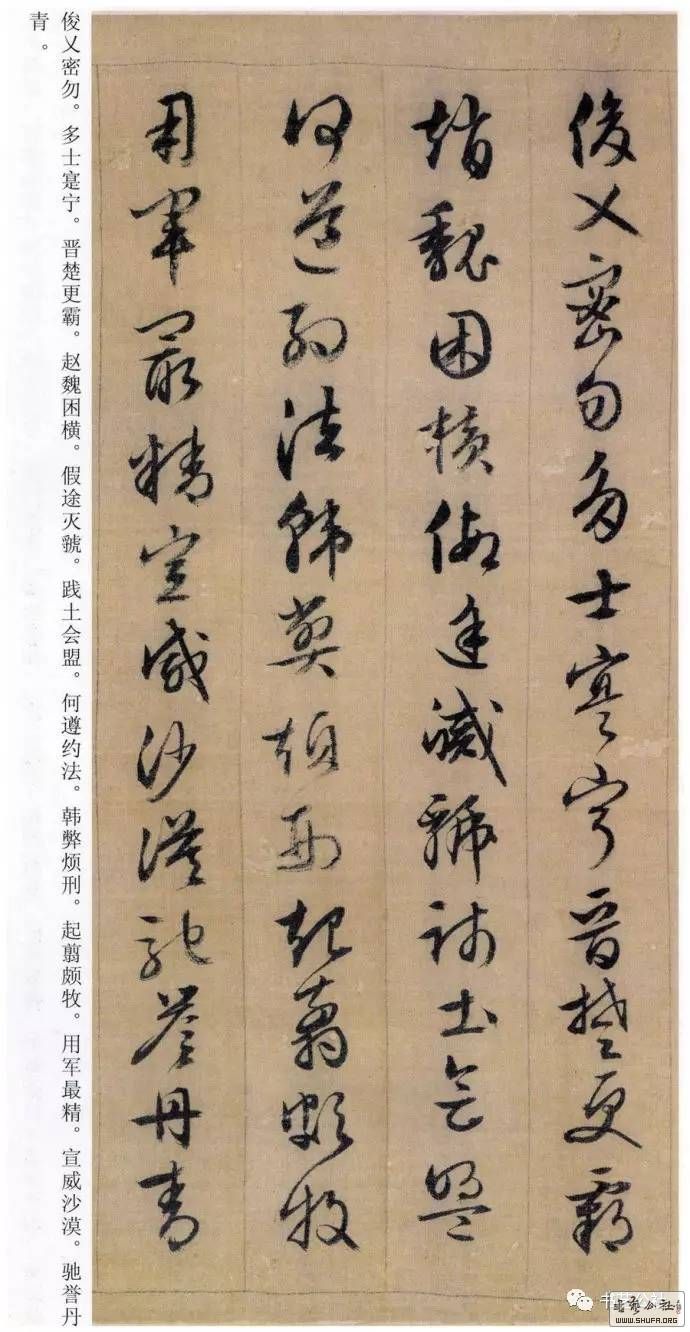 俊乂密勿多士寔宁晋楚更霸
趙魏困横假途滅虢践土会盟
何遵約法韩弊煩刑起翦頗牧
用軍最精宣威沙漠馳誉丹青
俊乂密勿。多士寔宁。晋楚更霸。赵魏困横。假途灭虢。践土会盟。何遵约法。韩弊烦刑。起翦颇牧。用军最精。宣威沙漠。驰誉丹
青。
WWW.SHUFA.ORG